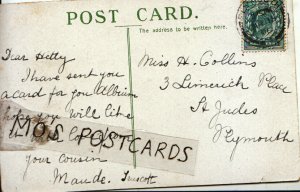 POST CARD.
The address to be written here.
Dear Hetty
I have sent you
a card for you Album
hope you will like
your cousin
Maude. Truscott
Miss H. Collins
3 Limerick Place
St Judes
Plymouth
MO'S POSTCARDS